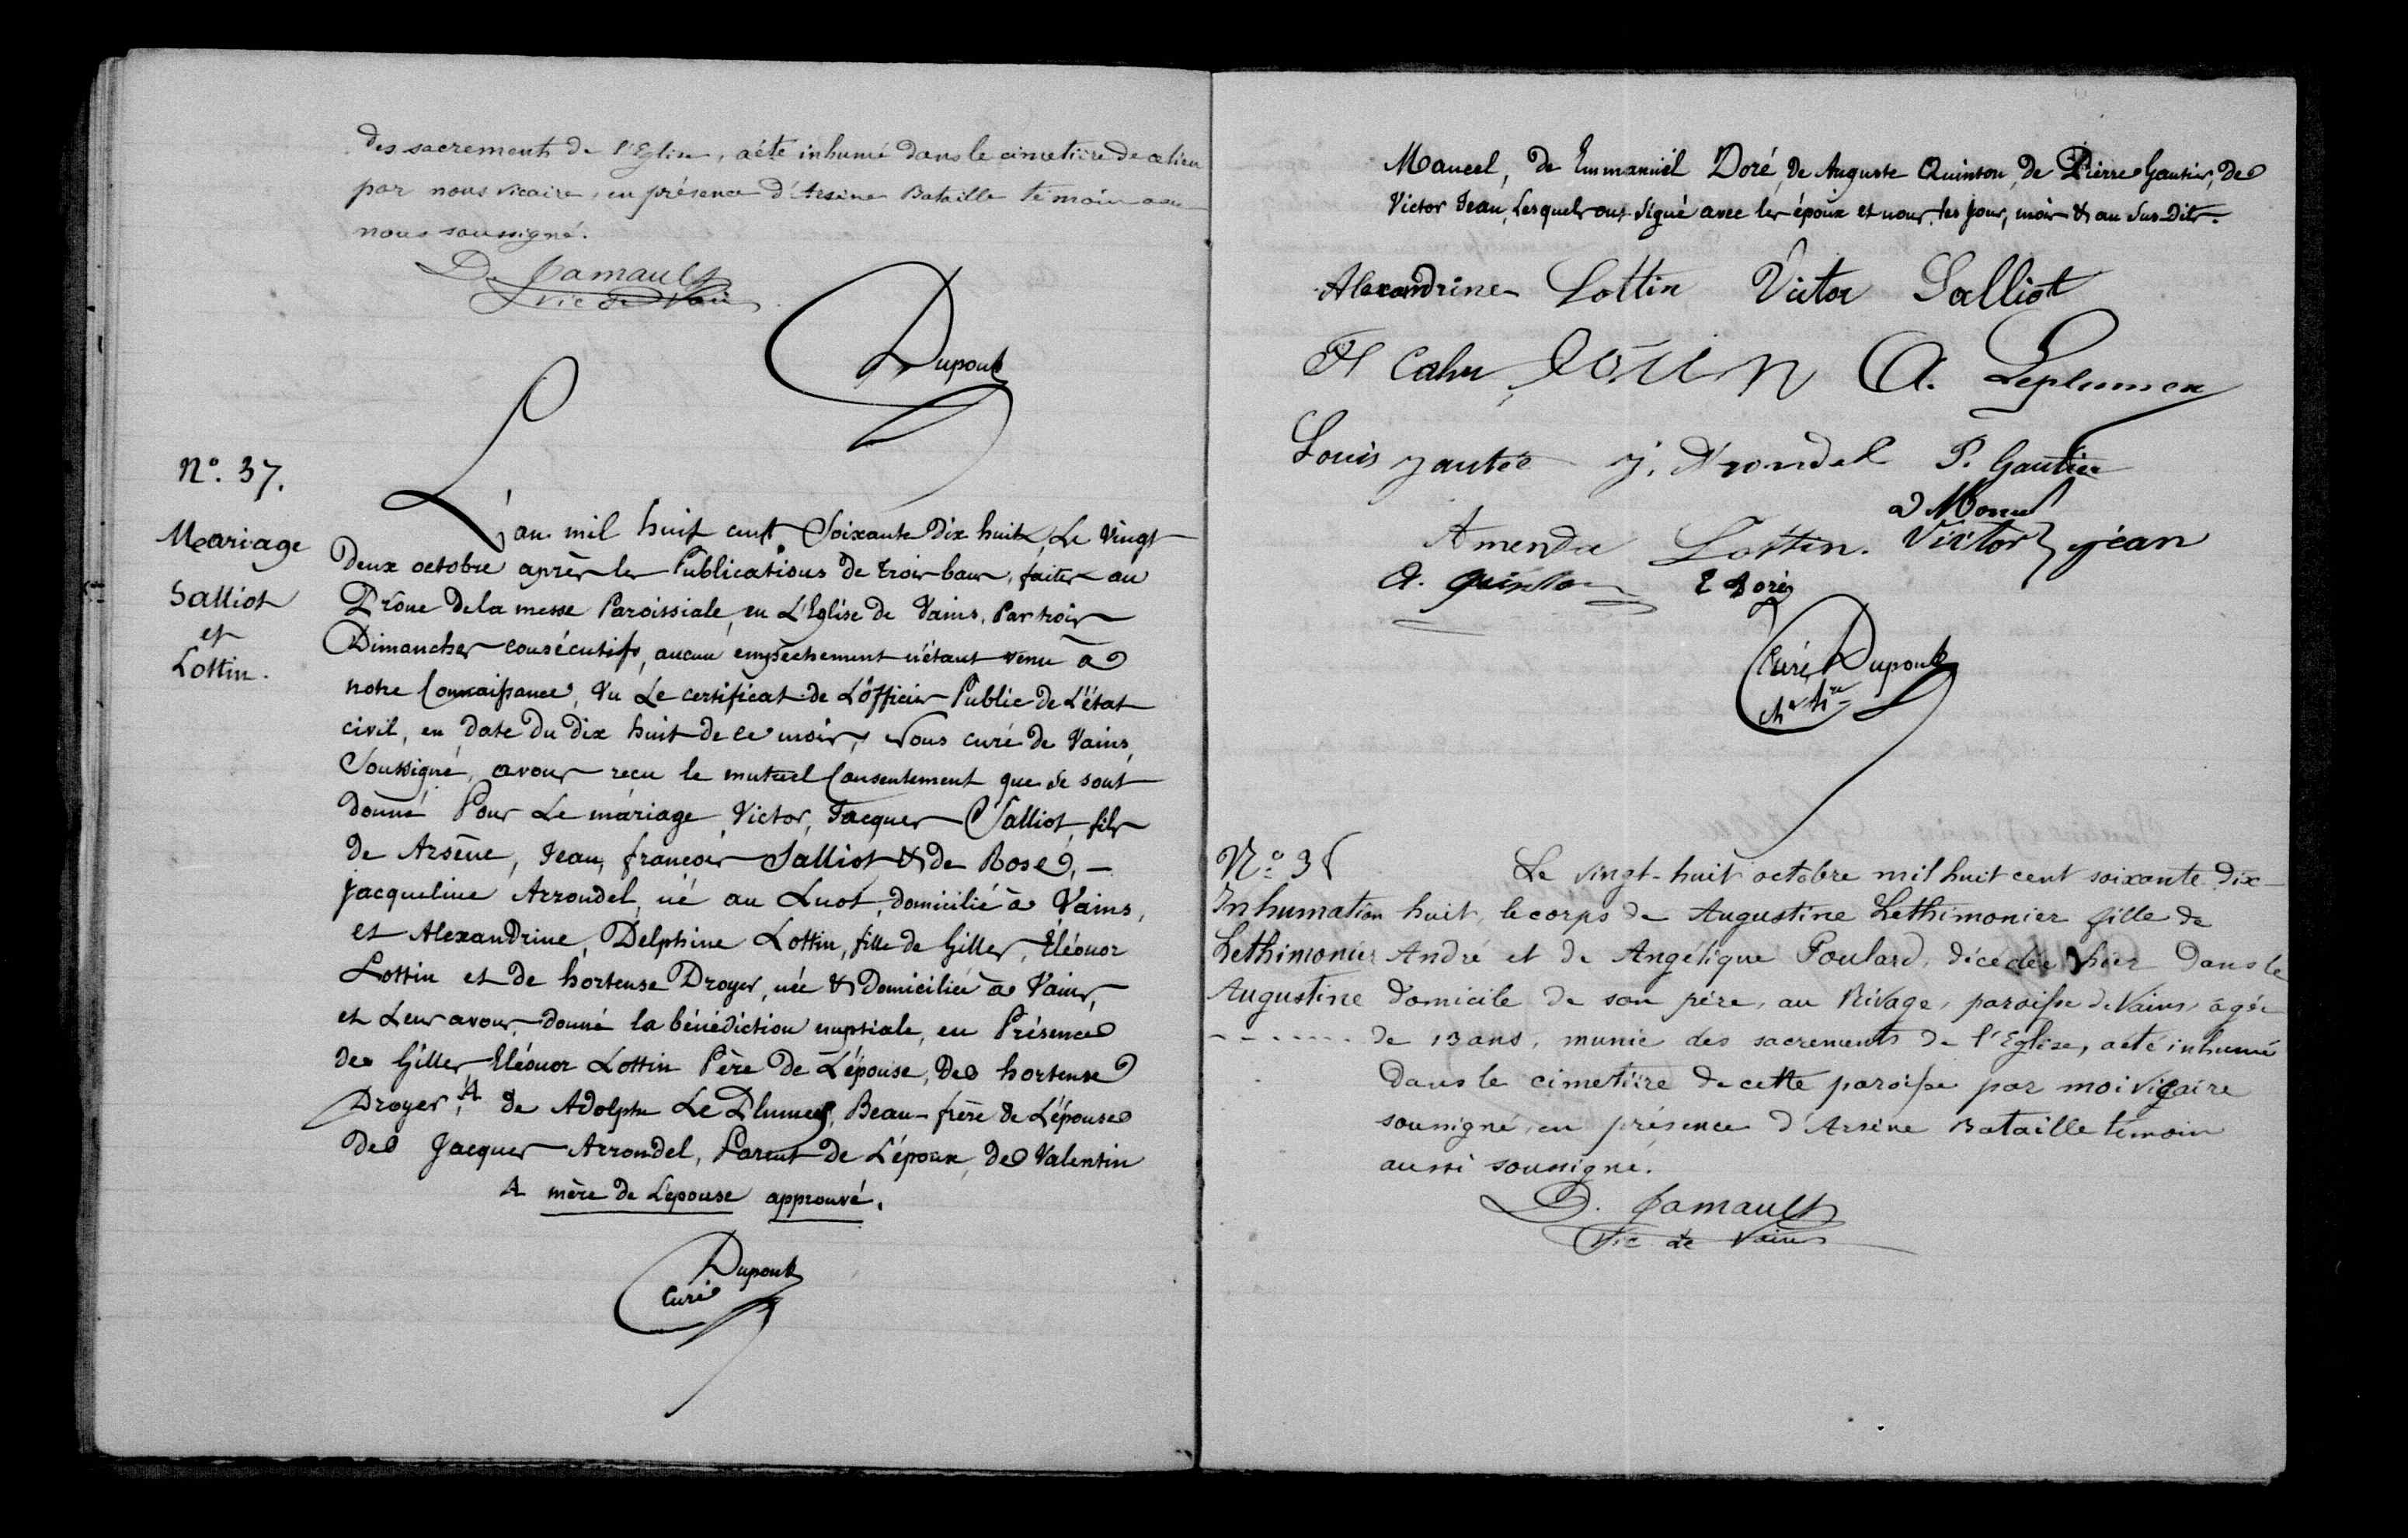 des sacrements de l'Eglise, a été inhumé dans le cimetière de ce lieu
par nous vicaire, en présence d'Arsène Bataille témoin avec
nous soussigné.
D. Jamault
vic de Vains
Dupont
N°. 37.
Mariage
Salliot
et
Lottin.
L'an mil huit cent Soixante dix huit, Le Vingt
Deux octobre après les Publications de trois bans, faites au
Prône de la messe Paroissiale, en L'Eglise de Vains, Par trois
Dimanches consécutifs, aucun empêchement n'étant venu à
notre Connaissance, Vu Le certificat de L'officier Public de L'état
civil, en date du dix huit de ce mois, Nous curé de Vains,
Soussigné, avons reçu le mutuel Consentement que se sont
donné Pour Le mariage, Victor, Jacques Salliot, fils
de Arsène, Jean, françois Salliot & de Rose, -
Jacqueline Arrondel, né au Luot, domicilié à Vains,
et Alexandrine, Delphine Lottin, fille de Gilles, Eléonor
Lottin et de hortense Droyer, née & Domiciliée à Vains,
et Leur avons, donné la bénédiction nuptiale, en Présence
de Gilles Eléonor Lottin Père de L'épouse, De hortense
Droyer, A de Adolphe Le Plumey, Beau-frère de L'épouse
De Jacques Arrondel, Parent de L'époux, de Valentin
A mère de L'epouse approuvé.
Dupont
Curé
Mancel, de Emmanuël Doré, de Auguste Quinton, de Pierre Gautier, de
Victor Jean, Lesquels ont Signé avec les époux et nous, les jour, mois & an Sus-dits.
Alexandrine Lottin Victor Salliot
H Cahu A. Leplumey
Louis gautié j. Arondel P. Gautier
Amenda Lottin. Victor jéan
A. Quinton E Doré
Curé Dupont
N° 38
Inhumation
Lethimonier
Augustine
Le vingt-huit octobre mil huit cent soixante dix-
huit, le corps de Augustine Lethimonier fille de
André et de Angélique Poulard, décédée hier dans le
domicile de son père, au Rivage, paroisse de Vains, agée
de 13 ans, munie des sacrements de l'Eglise, a été inhumé
dans le cimetière de cette paroisse par moi vicaire
soussigné, en présence d'Arsène Bataille témoin
aussi soussigné.
D. Jamault
Vic de Vains